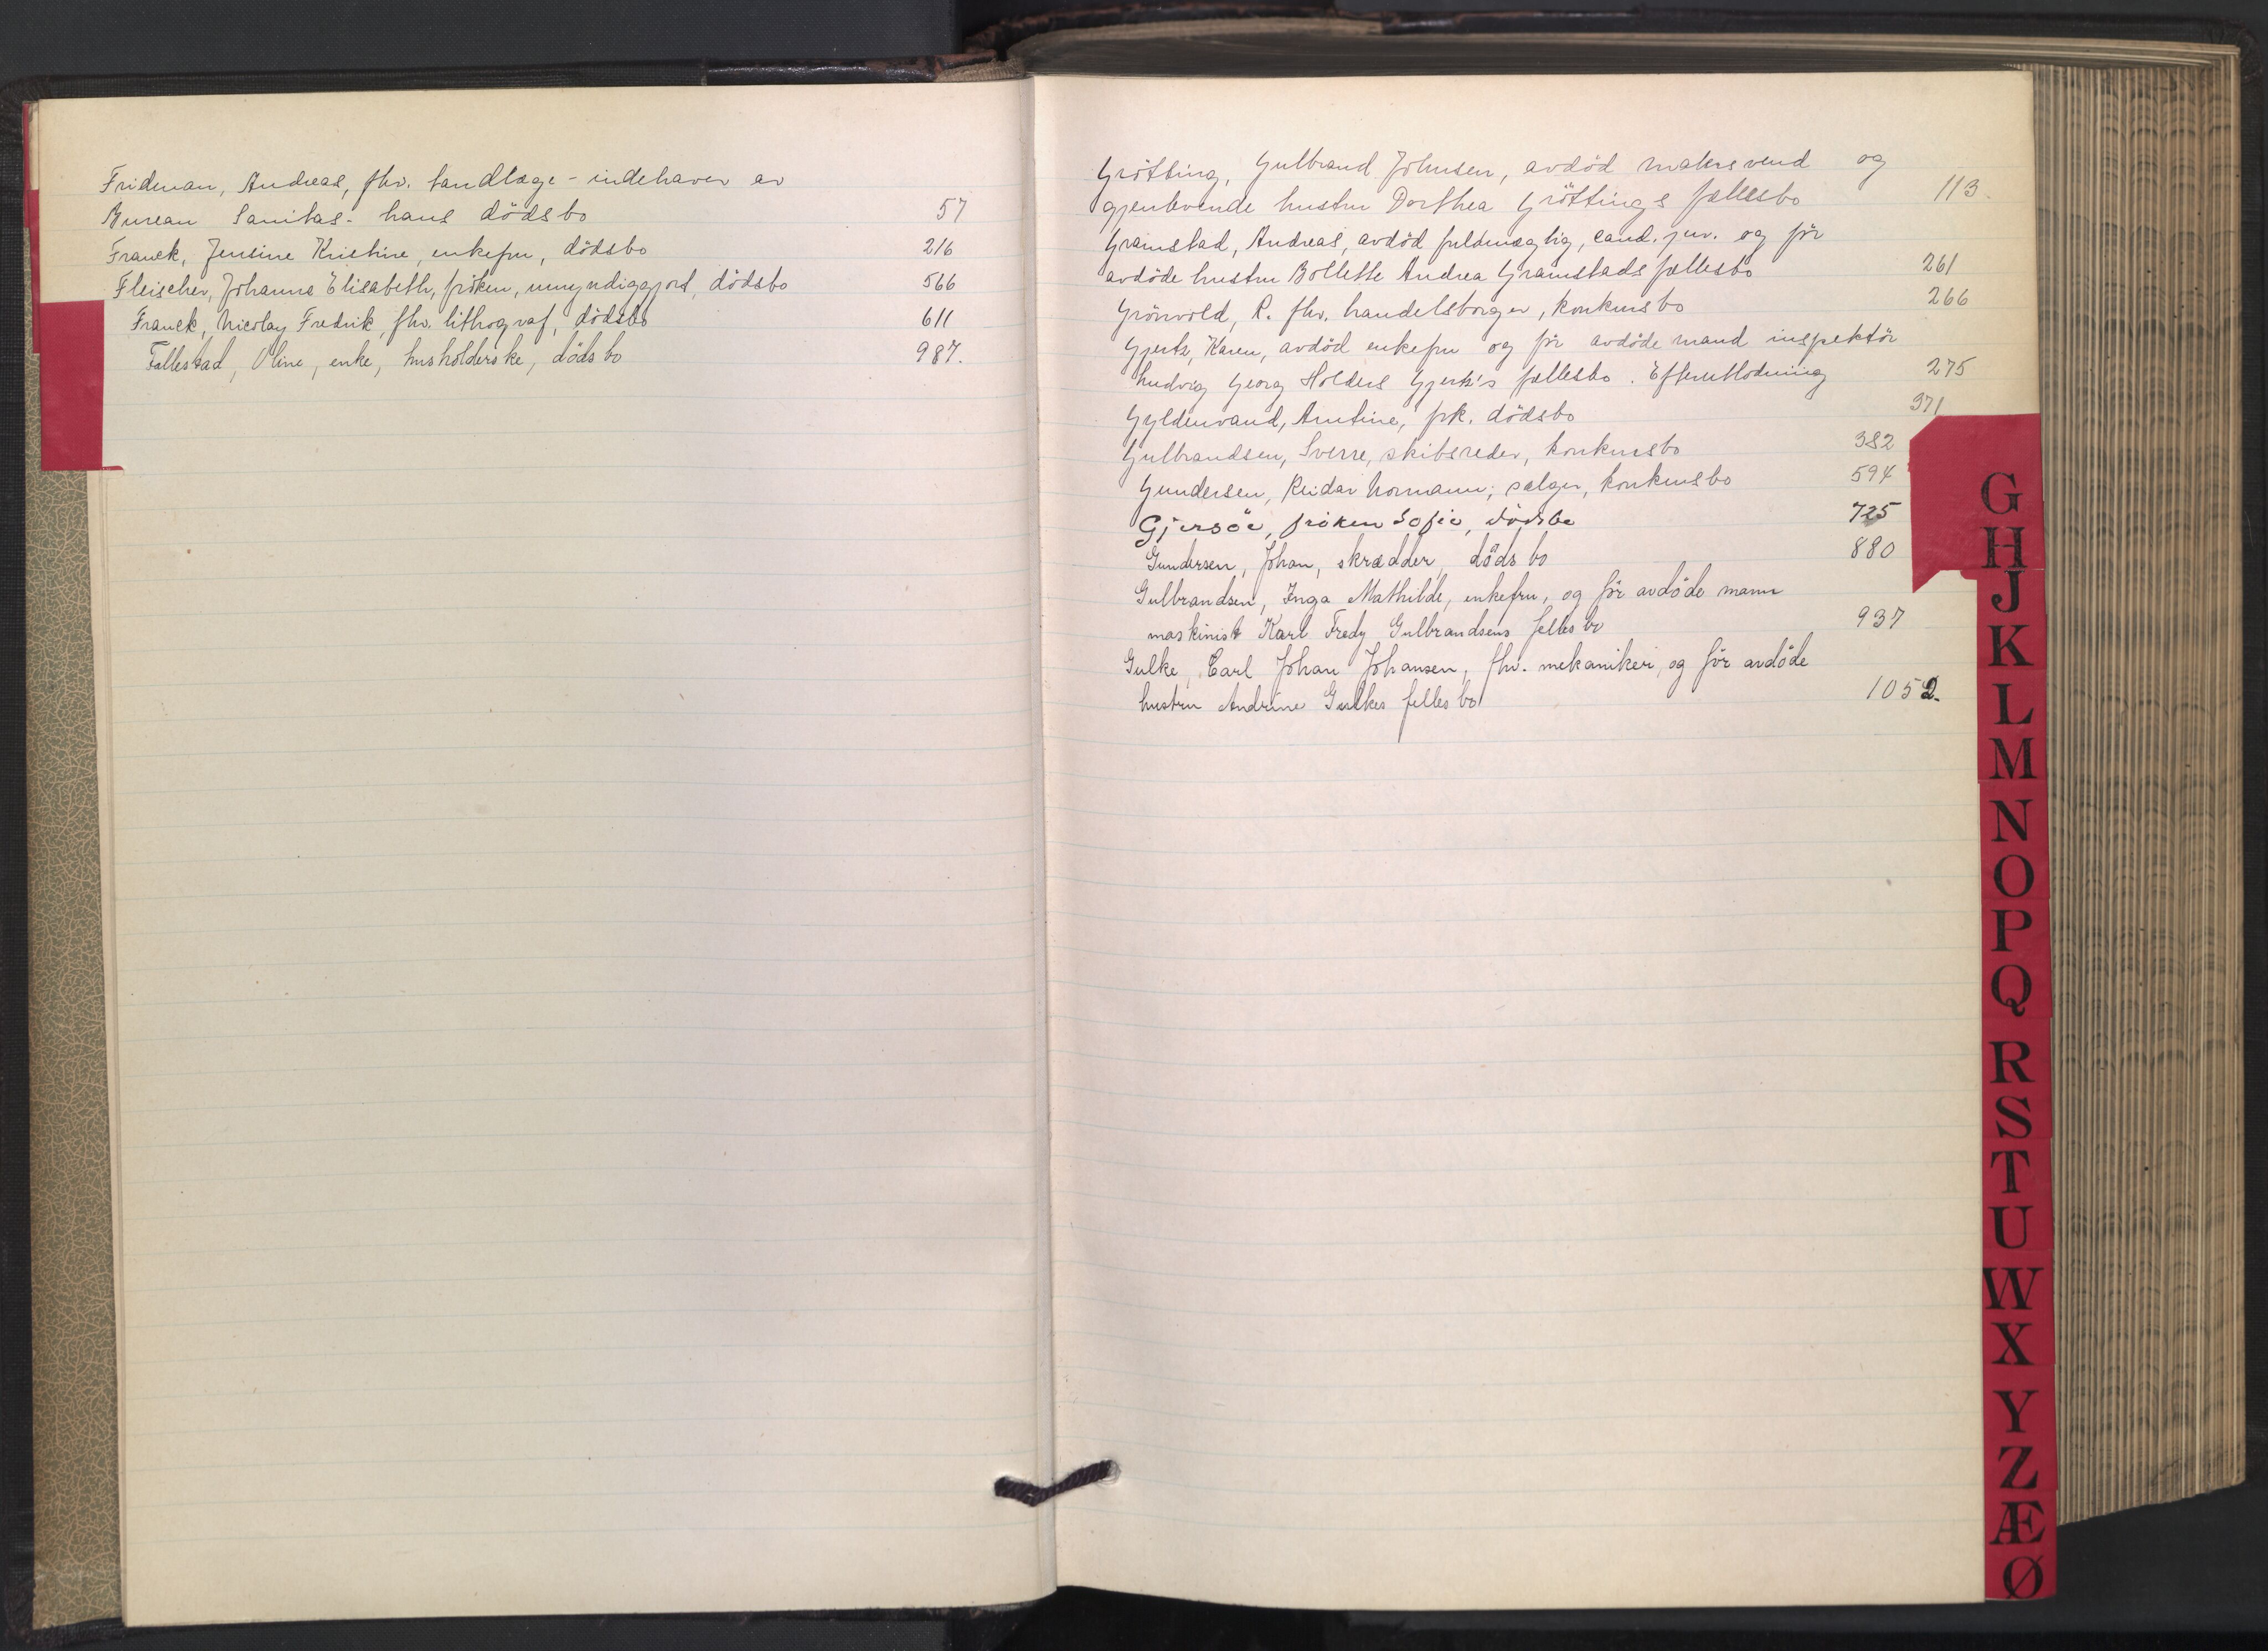 Fridman, Andreas, fhv. tandlæge - indehaver av
Bureau Sanitas - hans dödsbo 57
Franck, Jensine Kristine, enkefru, dödsbo 216
Fleischer, Johanna Elisabeth, fröken, umyndiggjort, dödsbo 566
Franck, Nicolay Fredrik, fhv. lithograf, dödsbo 611
Follestad, Oline, enke, husholderske, dödsbo 987.
Grötting, Gulbrand Johnsen, avdöd malersvend og
gjenlevende hustru Dorthea Gröttings fællesbo 113.
Gramstad, Andreas, avdöd fuldmægtig, cand. jur. og för
avdöde hustru Bollette Andrea Gramstads fællesbo 261
Grönvold, R. fhv. handelsborger, konkursbo 266
Gjertz, Karen, avdöd enkefru og för avdöde mand inspektör
Ludvig Georg Holders Gjertz's fællesbo. Efterutlodning 275
Gyldenvand, Amtine, frk. dödsbo 371
Gulbrandsen, Sverre, skibsreder, konkursbo 382
Gundersen, Reidar Normann, sælger, konkursbo 594
Gjersöe, fröken Sofie, dödsbo 725
Gundersen, Johan, skrædder, dödsbo 880
Gulbrandsen, Inga Mathilde, enkefru, og för avdöde mann
maskinist Karl Fredy Gulbrandsens fellesbo 937
Gulke, Carl Johan Johansen, fhv. mekaniker, og för avdöde
hustru Andrine Gulkes fellesbo 1052.
G
H
J
K
L
M
N
O
P
Q
R
S
T
U
W
X
Y
Z
Æ
Ø